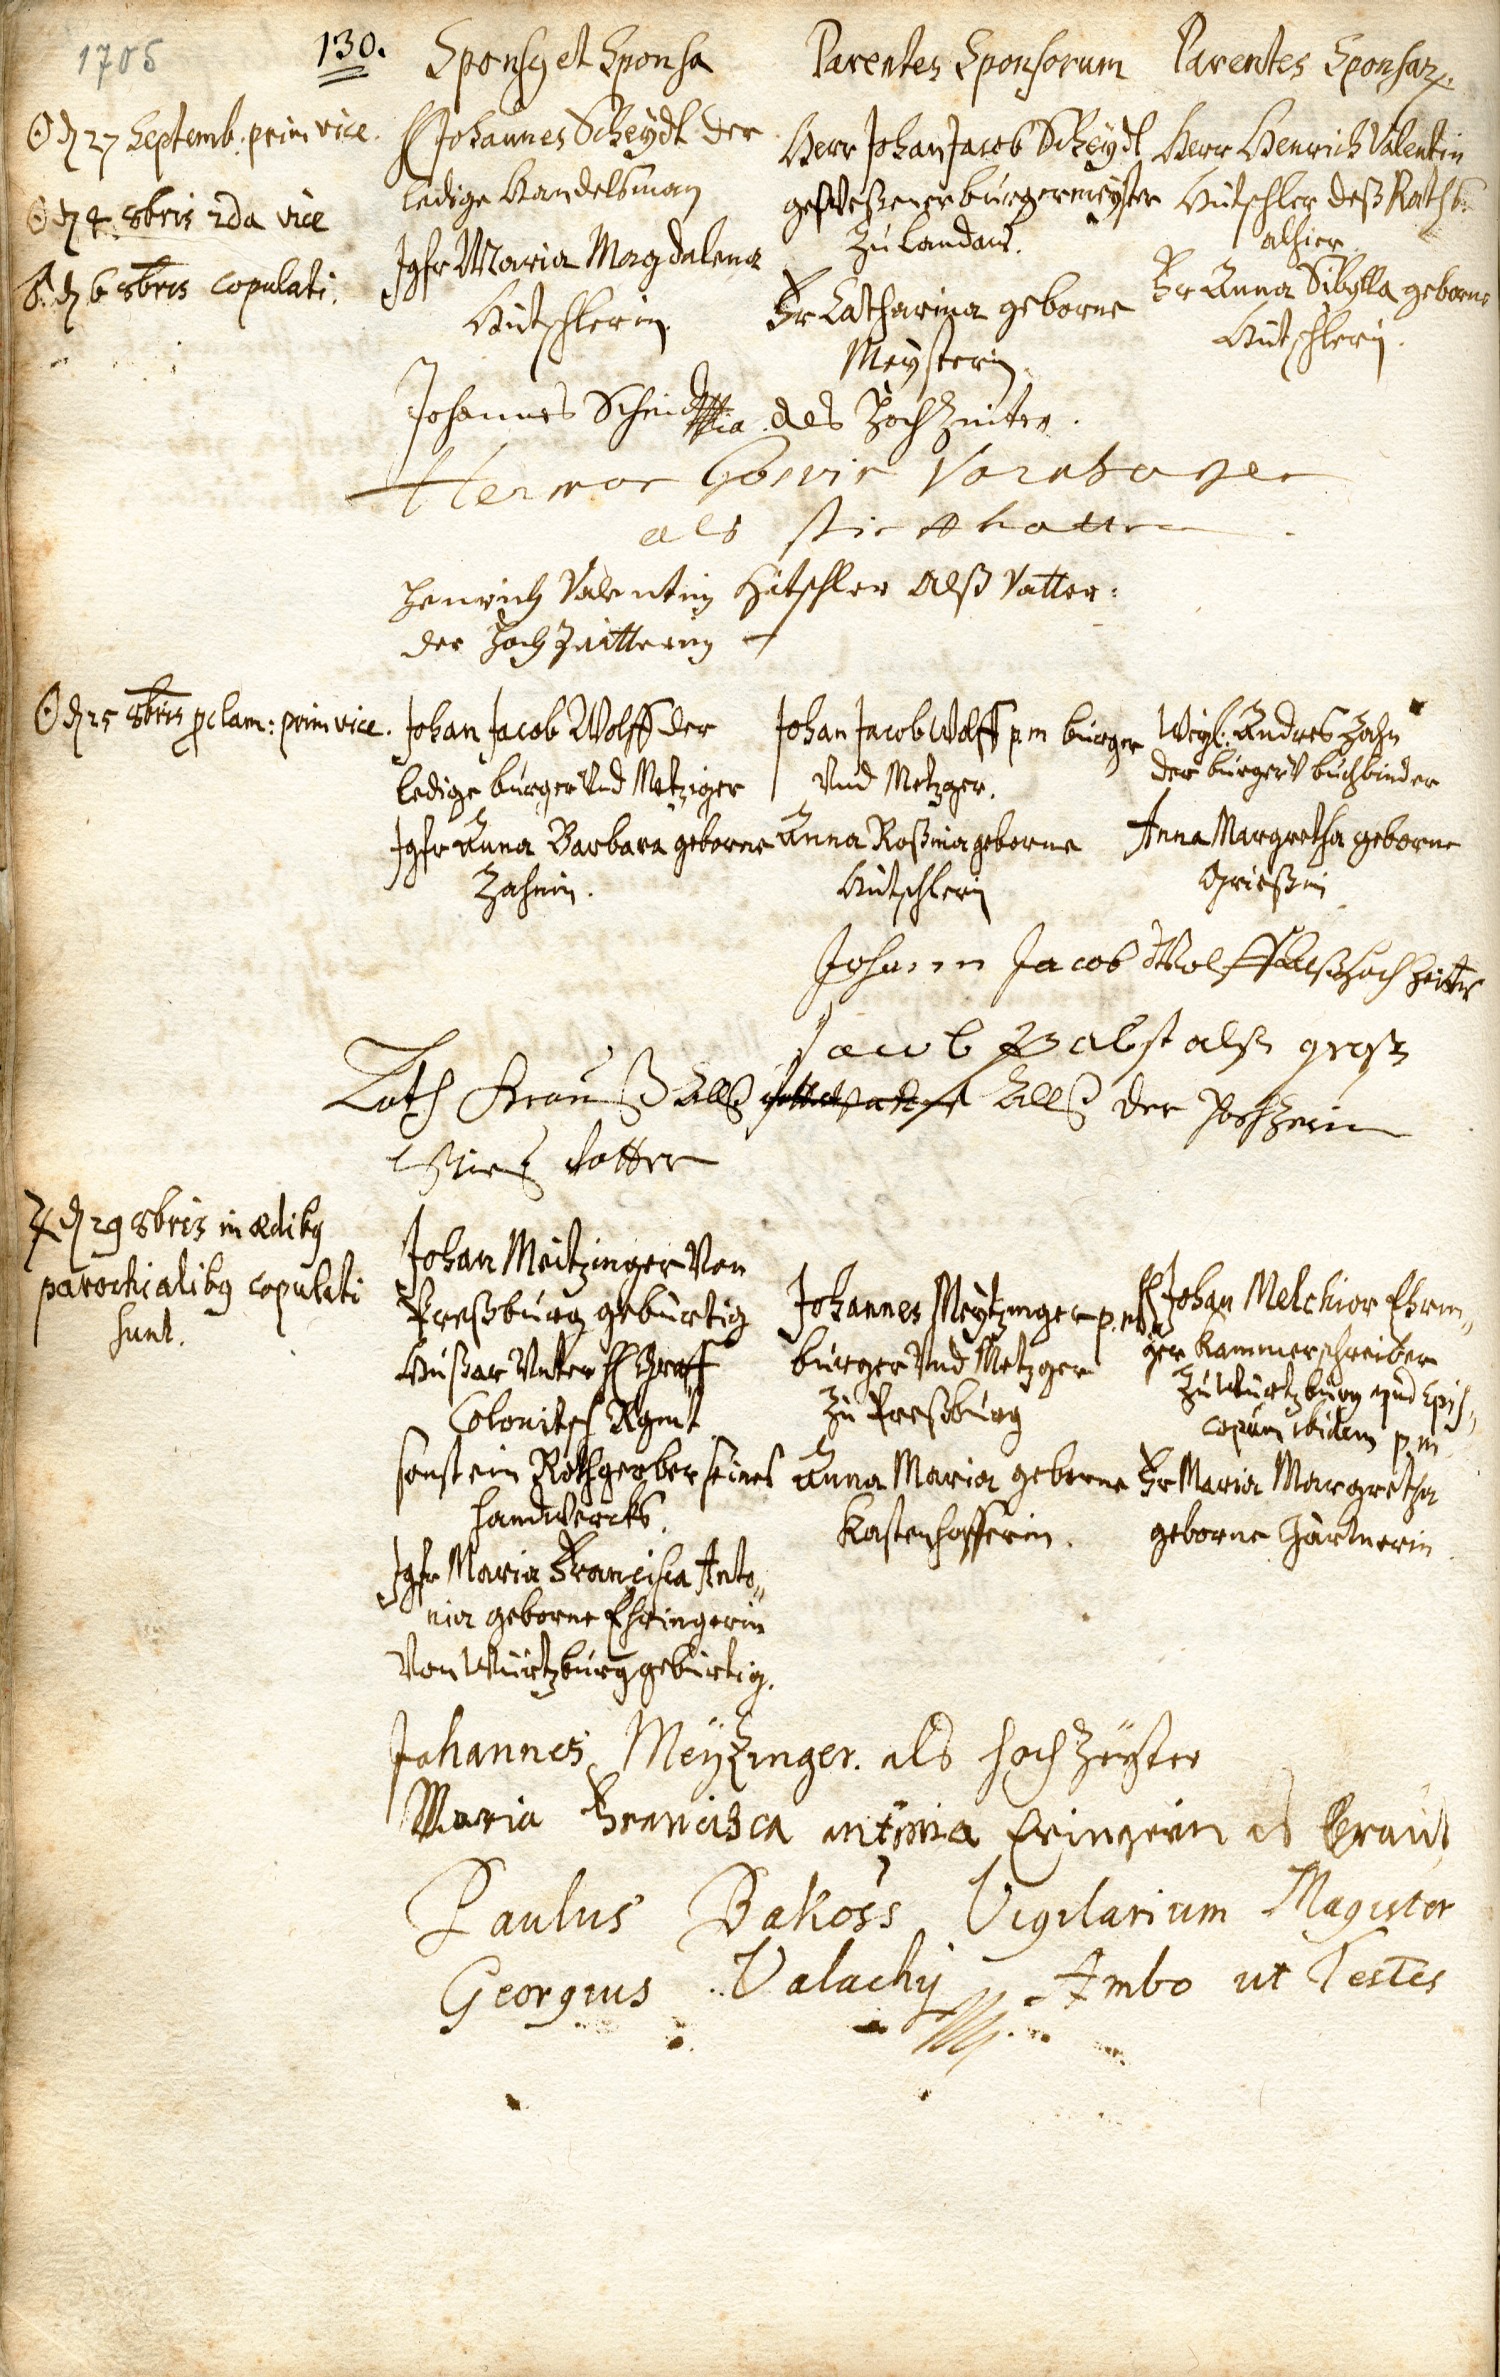 1705
130.
Sponsꝯ et Sponsa
Parentes Sponsorum
Parentes Sponsaꝝ.
☉ d 27 Septemb. prim vice.
☉ d 4 8bris 2da vice
d 6 8bris copulati.
H Johannes Scheydt der
ledige Handelsman
Jgfr Maria Magdalena
Hütschlerin.
Herr Johan Jacob Scheydt
geweßener burgermeyster
zu Landau.
Fr Catharina geborne
Meysterin
Herr Henrich Valentin
Hütschler deß Raths
alhier.
Fr Anna Sibylla geborne
Hütschlerin.
Johannes Scheidt als Hochzeiter.
als
Henrich Valentin Hütschler Alß Vatter
der Hochzeitterin
☉ d 25 8bris pclam: prim vice.
Johan Jacob Wolff der
ledige burger Vnd Metziger
Jgfr Anna Barbara geborne
Zahnin.
Johan Jacob Wolff p.m burger
Vnd Metzger.
Anna Roßina geborne
Hütschlerin
Weyl. Andres Zahn
der burger V buchbinder
Anna Margretha geborne
Grießin
Johann Jacob Wolff alß Hochzeitter
Jacob Pabst alß
Krauß Alß Alß der Hochzerin
♃ d 29 8bris in ædibꝯ
parochialibꝯ copulati
sunt.
Johan Meitzinger Von
Preßburg gebürtig
Hußar Vnter H Graff
Colonitsch Rgmt
sonst ein Rothgerber seines
handwercks.
Jgfr Maria Francisca Anto„
nia geborne Ehringerin
Von Würtzburg gebürtig.
Johannes Meytzinger p.m
burger Vnd Metzger
zu Preßburg
Anna Maria geborne
Kastenhofferin.
H Johan Melchior Ehrin„
ger Kammerschreiber
zu Würtzburg apud Epis„
copum ibidem p.m
Fr Maria Margretha
geborne Gärtnerin
Johannes Meÿtzinger. als hochzeyter
Maria Francisca antonia Eringerin als Braut
Paulus Bakoss Vigilarium Magister
Georgius Valachy Ambo ut Testes